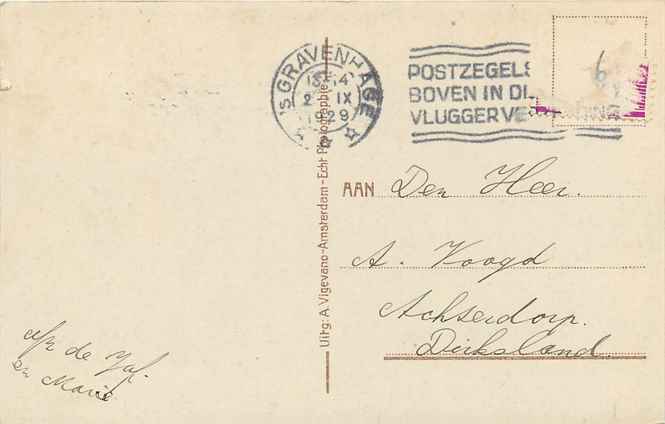 'S GRAVENHAGE
13-14
2 IX
1929
POSTZEGELS
BOVEN IN DE
VLUGGER VE
ING
6
Uitg: A. Vigevano-Amsterdam-Echt Photographie
AAN Den Heer.
A. Voogd
Achterdorp.
Dirksland.
afz de Jaf.
en Marie